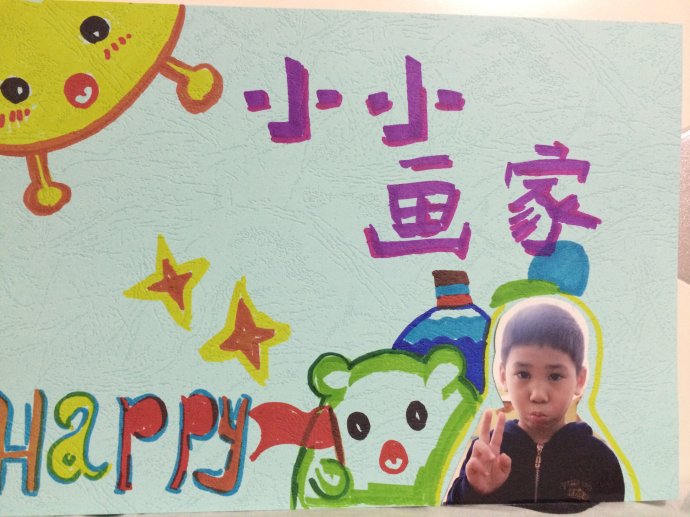 小小
画家
Happy